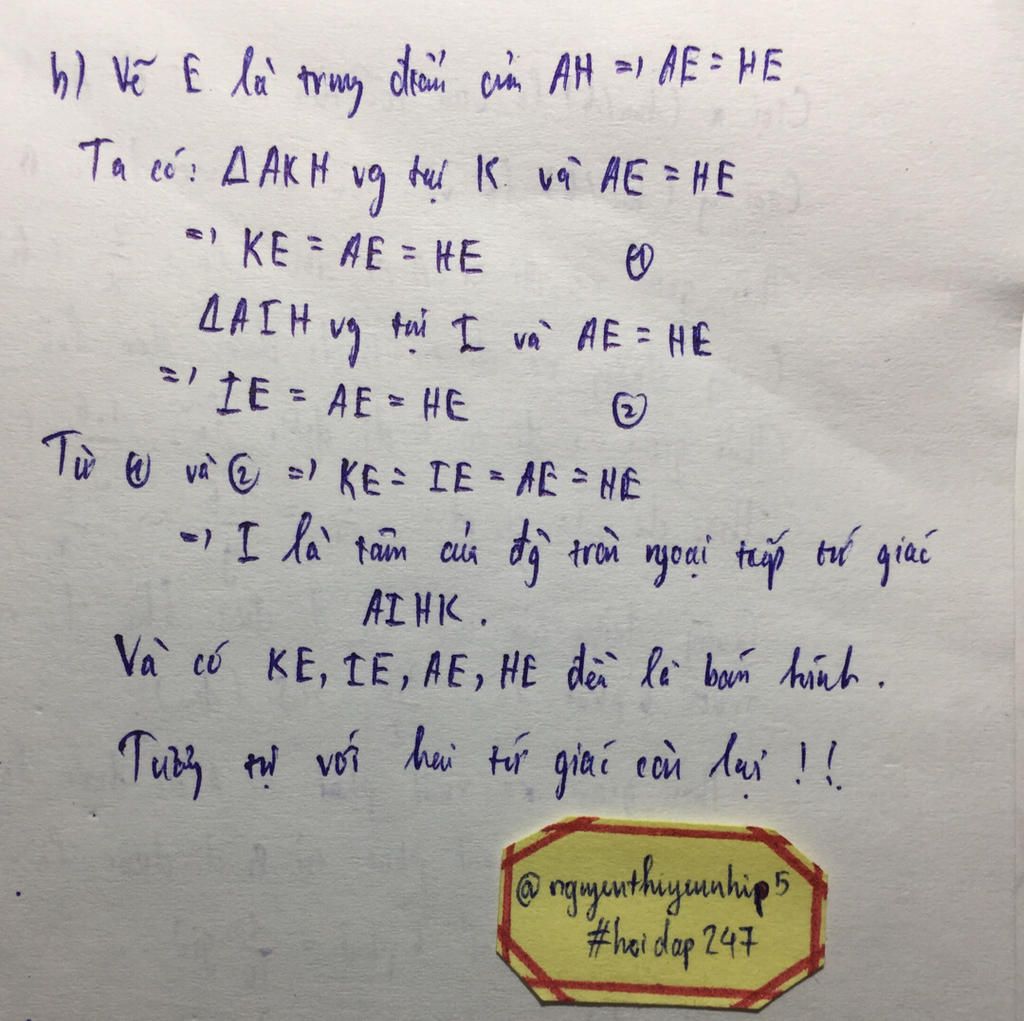 b) Vẽ E là trung điểm của AH => AE = HE
Ta có: ΔAKH vg tại K và AE = HE
=> KE = AE = HE ①
ΔAIH vg tại I và AE = HE
=> IE = AE = HE ②
Từ ① và ② => KE = IE = AE = HE
=> I là tâm của đg tròn ngoại tiếp tứ giác
AIHK.
Và có KE, IE, AE, HE đều là bán kính.
Tương tự với hai tứ giác còn lại !!
@nguyenthiyeunhip5
#hoidap247